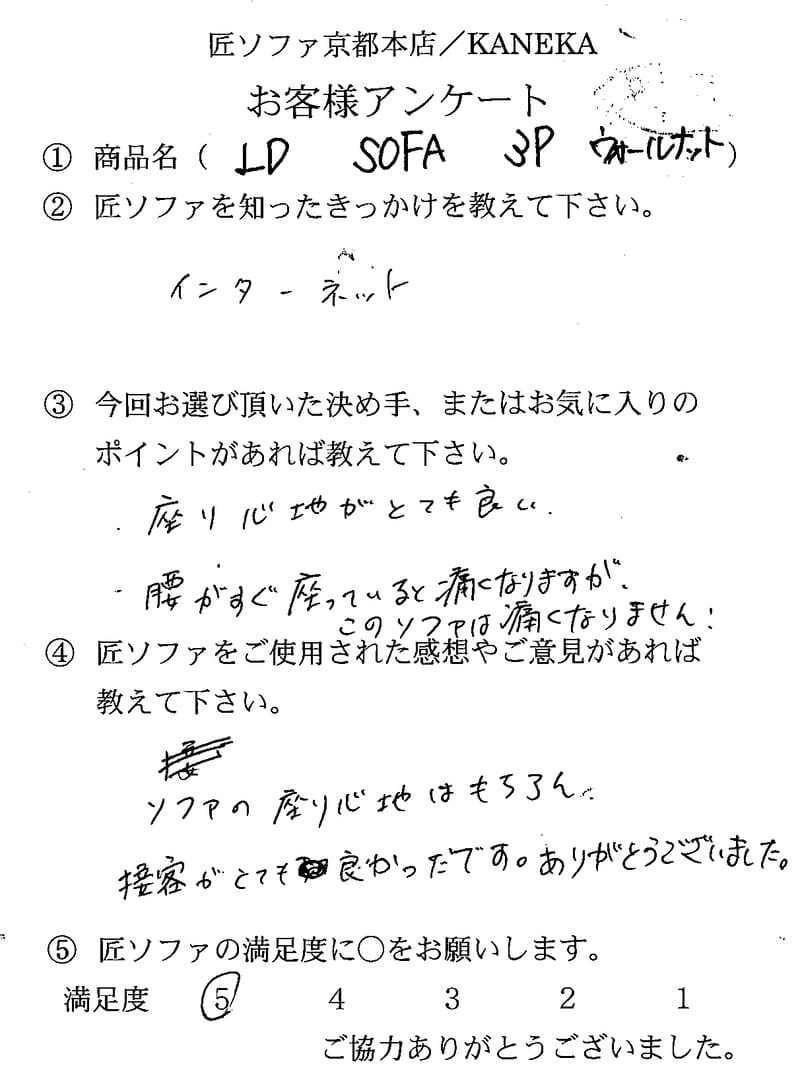 匠ソファ京都本店／KANEKA
お客様アンケート
① 商品名（ LD SOFA 3P ウォールナット）
② 匠ソファを知ったきっかけを教えて下さい。
インターネット
③ 今回お選び頂いた決め手、またはお気に入りの
ポイントがあれば教えて下さい。
・座り心地がとても良い.
・腰がすぐ座っていると痛くなりますが、
このソファは痛くなりません!
④ 匠ソファをご使用された感想やご意見があれば
教えて下さい。
ソファの座り心地はもちろん、
接客がとても良かったです。ありがとうございました。
⑤ 匠ソファの満足度に○をお願いします。
満足度 5 4 3 2 1
ご協力ありがとうございました。